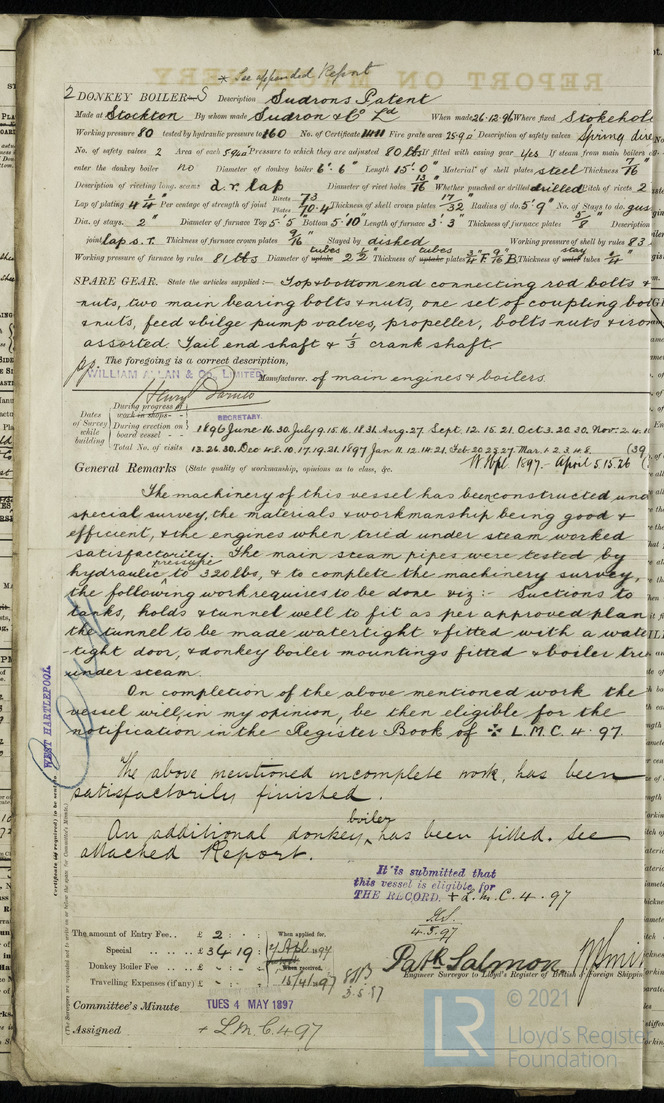 * See appended Report
REPORT ON MACHINERY
2 DONKEY BOILER-S Description Sudrons Patent
Made at Stockton By whom made Sudron & Co Ld When made 26.12.96 Where fixed Stokehold
Working pressure 80 tested by hydraulic pressure to 160 No. of Certificate 1411 Fire grate area 25.9 Description of safety valves Spring dire
No. of safety valves 2 Area of each 5.9 Pressure to which they are adjusted 80 lbs If fitted with easing gear yes If steam from main boilers
enter the donkey boiler no Diameter of donkey boiler 6'.6" Length 15'.0" Material of shell plates steel Thickness 7/16"
Description of riveting long. seams d.r. lap Diameter of rivet holes 13/16" Whether punched or drilled drilled Pitch of rivets 2
Lap of plating 4 1/4" Per centage of strength of joint Rivets 73 Plates 70.4 Thickness of shell crown plates 17/32" Radius of do. 5'.9" No. of Stays to do. gus
Dia. of stays. 2" Diameter of furnace Top 5'.5" Bottom 5'.10" Length of furnace 3'.3" Thickness of furnace plates 5/8" Description
joint lap s.r. Thickness of furnace crown plates 9/16" Stayed by dished Working pressure of shell by rules 83
Working pressure of furnace by rules 81 lbs Diameter of uptake tubes 2 1/2" Thickness of uptake tubes plates 3/4" F 9/16" B. Thickness of water stay tubes 1/4"
SPARE GEAR. State the articles supplied:— Top & bottom end connecting rod bolts &
nuts, two main bearing bolts & nuts, one set of coupling bol
& nuts, feed & bilge pump valves, propeller, bolts nuts & iron
assorted Tail end shaft & 1/3 crank shaft
pp. The foregoing is a correct description,
WILLIAM ALLAN & Co. LIMITED Manufacturer. of main engines & boilers
SECRETARY.
Dates of Survey while building
During progress of work in shops - -
During erection on board vessel - - -
Total No. of visits
1896 June 16.30. July 9.15.16.18.31. Aug. 27. Sept. 12.15.21. Oct. 3.20.30. Nov. 2.4.11
13.26.30. Dec 4.8.10.17.19.21. 1897 Jan 11.12.14.21. Feb. 20.23.27. Mar. 1.2.3.4.8. (39
W. Hpl. 1897. - April 5.15.26
General Remarks (State quality of workmanship, opinions as to class, &c.
The machinery of this vessel has been constructed und
special survey, the materials & workmanship being good &
efficient, & the engines when tried under steam worked
satisfactorily. The main steam pipes were tested by
hydraulic pressure to 320 lbs, & to complete the machinery survey,
the following work requires to be done viz:- Suctions to
tanks, holds & tunnel well to fit as per approved plan
the tunnel to be made watertight & fitted with a wate
tight door, & donkey boiler mountings fitted & boiler tri
under steam.
On completion of the above mentioned work the
vessel will, in my opinion, be then eligible for the
notification in the Register Book of ✠ L.M.C. 4.97.
WEST HARTLEPOOL
The above mentioned incomplete work, has been
satisfactorily finished.
An additional donkey boiler has been fitted. See
attached Report.
It is submitted that
this vessel is eligible for
THE RECORD. + L.M.C. 4.97
4.5.97
The amount of Entry Fee.. £ 2 : : When applied for,
Special .. .. £ 34 : 19 : 7 Apl 1897
Donkey Boiler Fee .. .. £ : : When received,
Travelling Expenses (if any) £ : : 15/4/1897
3.5.97
Patk Salmon
Engineer Surveyor to Lloyd's Register of British & Foreign Shipping
Committee's Minute TUES 4 MAY 1897
Assigned + L.M.C. 4.97
LR
© 2021
Lloyd's Register
Foundation